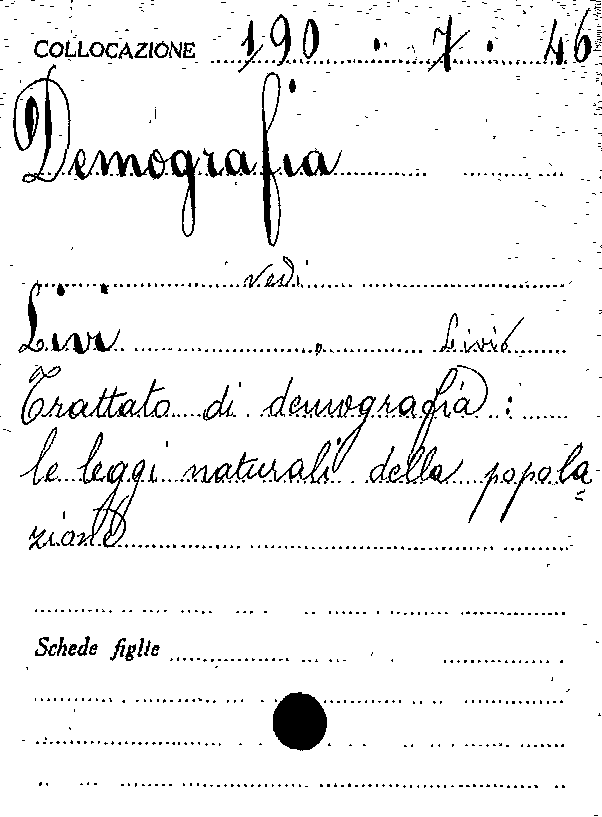 COLLOCAZIONE 190 . 7 . 46
Demografia
vedi
Livi , Livio
Trattato di demografia :
le leggi naturali della popola=
zione
Schede figlie